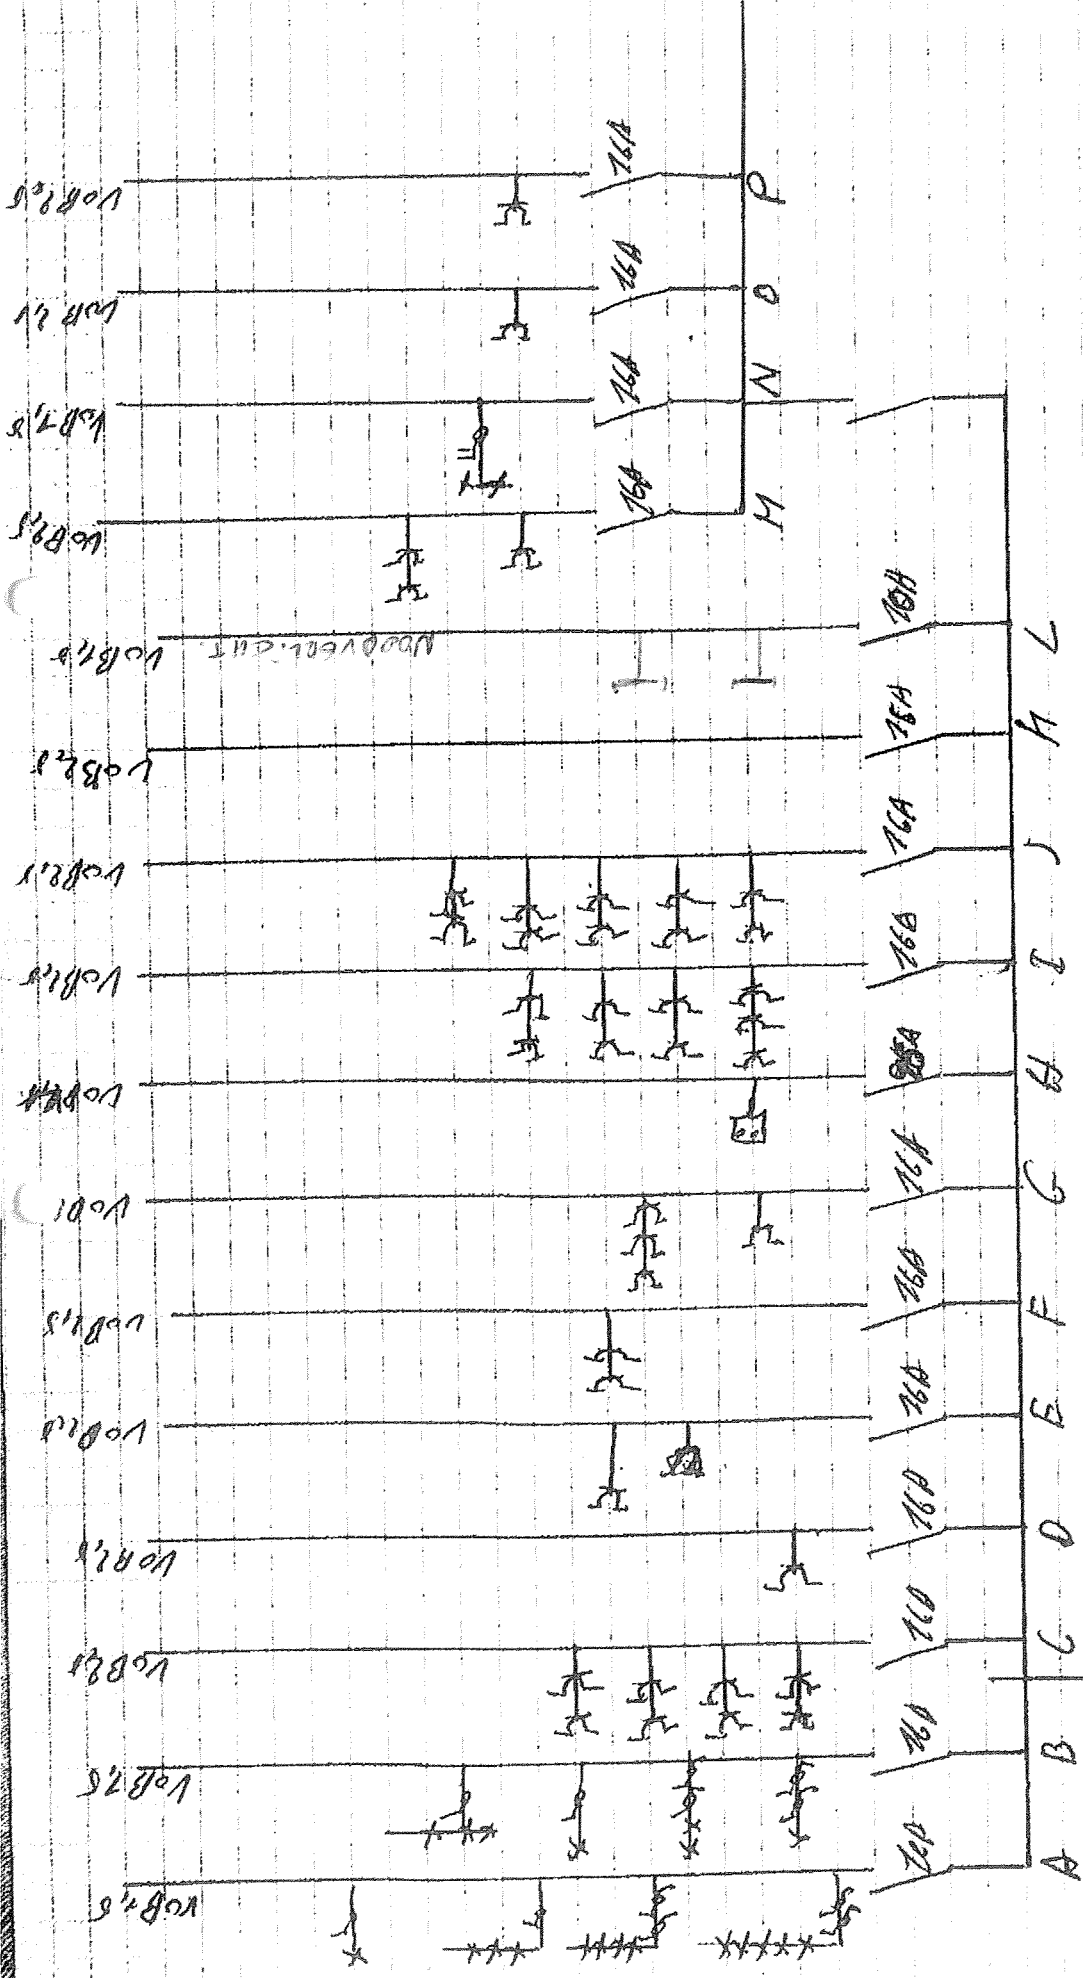 VOB 2,5
16A
P
VOB 2,5
16A
O
VOB 1,5
16A
N
VOB 2,5
16A
M
VOB 1,5
NOODVERLICHT.
10A
L
VOB 2,5
16A
VOB 2,5
16A
J
VOB 2,5
16A
I
H
VOB
16A
G
VOB 2,5
16A
F
VOB 2,5
16A
E
VOB 2,5
16A
D
VOB 2,5
16A
C
VOB 1,5
16A
B
VOB 1,5
16A
A